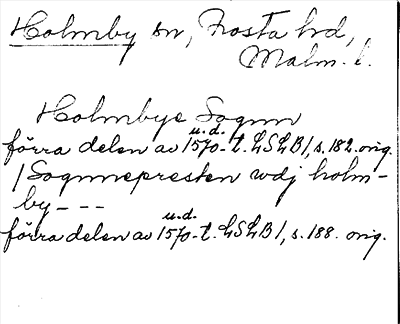 Holmby sn, Frosta hrd,
Malm. l.
Holmbye Sognn
u.d.
förra delen av 1570-t. LSLB 1, s. 182. orig.
/Sognnepresten wdj holm-
by - - -
u.d.
förra delen av 1570-t. LSLB 1, s. 188. orig.